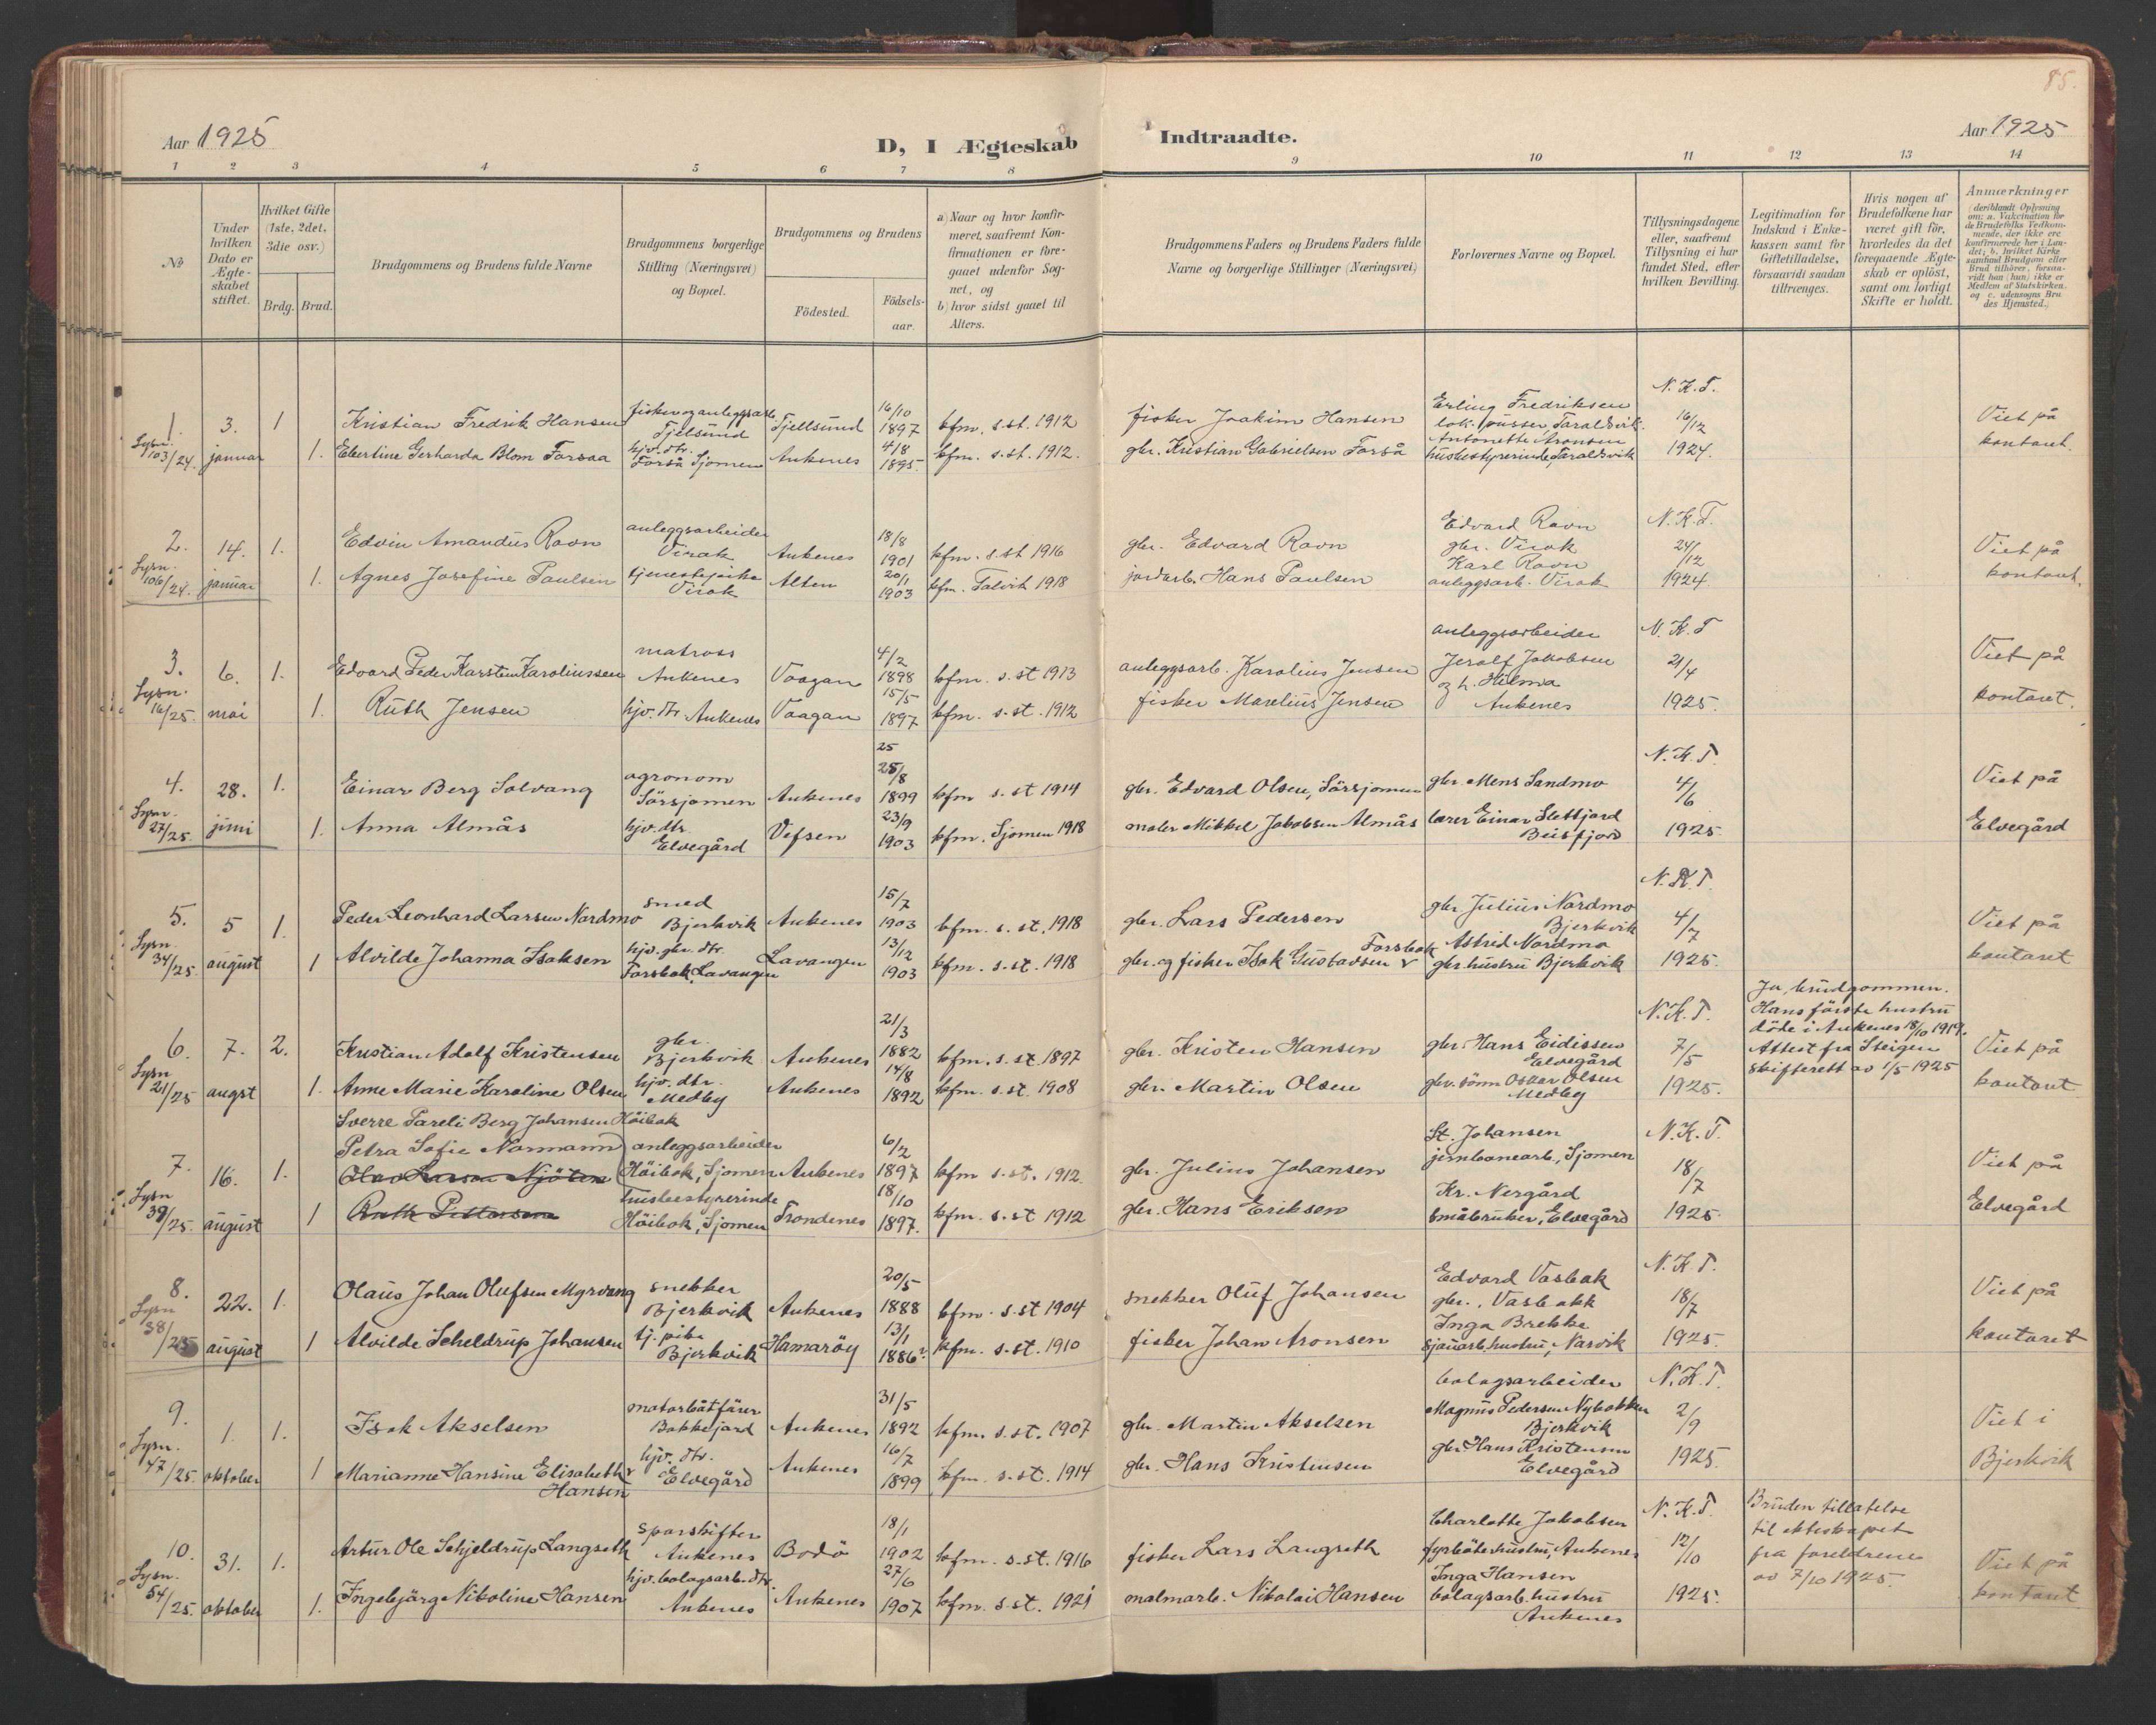 85.
Aar 1925
D, I Ægteskab Indtraadte.
Aar 1925
1 2 3 4 5 6 7 8 9 10 11 12 13 14
№
Under hvilken Dato er Ægteskabet stiftet.
Hvilket Gifte (1ste, 2det, 3die osv.)
Brdg. Brud.
Brudgommens og Brudens fulde Navne
Brudgommens borgerlige Stilling (Næringsvei) og Bopæl.
Brudgommens og Brudens
Födested.
Födsels-aar.
a) Naar og hvor konfirmeret, saafremt Konfirmationen er foregaaet udenfor Sognet, og
b) hvor sidst gaaet til Alters.
Brudgommens Faders og Brudens Faders fulde Navne og borgerlige Stillinger (Næringsvei)
Forlovernes Navne og Bopæl.
Tillysningsdagene eller, saafremt Tillysning ei har fundet Sted, efter hvilken Bevilling.
Legitimation for Indskud i Enkekassen samt for Giftetilladelse, forsaavidt saadan tiltrænges.
Hvis nogen af Brudefolkene har været gift för, hvorledes da det foregaaende Ægteskab er oplöst, samt om lovligt Skifte er holdt.
Anmærkninger
(deriblandt Oplysning om: a. Vakcination for de Brudefolks Vedkommende, der ikke ere konfirmerede her i Landet; b. hvilket Kirkesamfund Brudgom eller Brud tilhörer, forsaavidt han (hun) ikke er Medlem af Statskirken. og c. udensogns Brudes Hjemsted.)
1. Lysn. 103/24. 3. januar 1 Kristian Fredrik Hansen fisker og anleggsarb. Tjelsund Tjellsund 16/10 1897 kfm. s.st. 1912 fisker Joakim Hansen Erling Fredriksen lok. pusser, Taraldsvik. N.K.T. 16/12 1924. Viet på kontoret
1. Ebertine Gerharda Blom Forsaa hjv. dtr. Forså Sjomen Ankenes 4/8 1895. kfm. s.st. 1912. gbr. Kristian Gabrielsen Forså Antonette Aronsen husbestyrerinde, Taraldsvik
2. Lysn. 106/24. 14. januar 1. Edvin Amandus Ravn anleggsarbeider Virak Ankenes 18/8 1901 kfm. s.st 1916 gbr. Edvard Ravn Edvard Ravn gbr. Virak N.K.T. 24/12 1924. Viet på kontoret.
1. Agnes Josefine Paulsen tjenestepike Virak Alten 20/1 1903 kfm. Talvik 1918 jordarb. Hans Paulsen Karl Ravn anleggsarb. Virak
3. Lysn. 16/25. 6. mai 1. Edvard Peder Karsten Karoliussen matros Ankenes Vaagan 4/2 1898 kfm. s.st 1913 anleggsarb. Karolius Jensen anleggsarbeider Jerolf Jakobsen N.K.T 21/4 1925. Viet på kontoret.
1. Ruth Jensen hjv. dtr. Ankenes Vaagan 15/5 1897 kfm. s.st. 1912 fisker Marelius Jensen og h. Hilma Ankenes
4. Lysn. 27/25. 28. juni 1. Einar Berg Solvang agronom Sörsjomen Ankenes 25 25/8 1899 kfm s.st 1914 gbr. Edvard Olsen, Sörsjomen gbr Mens Sandmo N.K.T. 4/6 1925. Viet på Elvegård
1. Anna Almås hjv. dtr. Elvegård Vefsen 23/9 1903 kfm. Sjomen 1918 maler Mikkel Jakobsen Almås lærer Einar Slettjord Beisfjord
5. Lysn. 34/25. 5 august 1. Peder Leonhard Larsen Nordmo smed Bjerkvik Ankenes 15/7 1903 kfm. s.st. 1918 gbr. Lars Pedersen gbr Julius Nordmo Bjerkvik N.K.T. 4/7 1925. Viet på kontoret
1 Alvilde Johanna Isaksen hjv. gbr. dtr. Forsbak, Lavangen Lavangen 13/12 1903 kfm. s.st. 1918 gbr. og fisker Isak Gustavsen Forsbak Astrid Nordmo gbr. hustru Bjerkvik
6. Lysn 21/25 7. augst 2. Kristian Adolf Kristensen gbr. Bjerkvik Ankenes 21/3 1882 kfm. s.st. 1897 gbr. Kristen Hansen gbr. Hans Eidissen Elvegård N.K.T. 7/5 1925. Ja, brudgommen. Hans förste hustru döde i Ankenes 18/10 1919. Attest fra Steigen skifterett av 1/5 1925 Viet på kontoret
1. Anne Marie Karoline Olsen hjv. dtr. Medby Ankenes 14/8 1892 kfm. s.st. 1908 gbr. Martin Olsen gbr. sönn Oskar Olsen Medby
7. Lysn 39/25. 16. august 1. Sverre Pareli Berg Johansen Höibak
Petra Sofie Normann anleggsarbeider Höibak, Sjomen Ankenes 6/2 1897 kfm s.st. 1912. gbr. Julius Johansen St. Johansen jernbanearb., Sjomen N.K.T. 18/7 1925. Viet på Elvegård
1 husbestyrerinde Höibak, Sjomen Trondenes 18/10 1897. kfm. s.st 1912 gbr. Hans Eriksen Kr. Nergård småbruker, Elvegård
8. Lysn 38/25 22. august 1. Olaus Johan Olufsen Myrvang snekker Bjerkvik Ankenes 20/5 1888 kfm. s.st 1904 snekker Oluf Johansen Edvard Vasbak gbr., Vasbakk N.K.T. 18/7 1925. Viet på kontoret
1 Alvilde Scheldrup Johansen tj. pike Bjerkvik Hamaröy 13/1 1886 kfm. s.st. 1910 fisker Johan Aronsen Inga Brekke sjauarb. hustru, Narvik
9. Lysn. 47/25. 1. oktober 1. Isak Akselsen motorbåtförer Bakkejord Ankenes 31/5 1892 kfm. s.st. 1907 gbr. Martin Akselsen bolagsarbeider Magnus Pedersen Nybakken Bjerkvik N.K.T. 2/9 1925. Viet i Bjerkvik
1 Marianne Hansine Elisabeth Hansen hjv. dtr. Elvegård Ankenes 16/7 1899 kfm. s.st. 1914 gbr. Hans Kristensen gbr Hans Kristensen Elvegård
10. Lysn. 54/25. 31. oktober 1. Artur Ole Schjeldrup Langseth sporskifter Ankenes Bodö 18/1 1902 kfm. s.st. 1916 fisker Lars Langseth Charlotte Jakobsen fyrböterhustru, Ankenes N.K.T 12/10 1925. Bruden tillatelse til ekteskapet fra foreldrene av 7/10 1925. Viet på kontoret
1. Ingebjörg Nikoline Hansen hjv. bolagsarb. dtr. Ankenes Ankenes 27/6 1907 kfm. s.st. 1921 malmarb. Nikolai Hansen Inga Hansen bolagsarb. hustru Ankenes